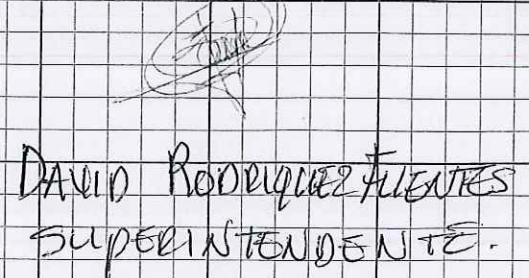 DAVID RODRIQUEZ FUENTES
SUPERINTENDENTE.